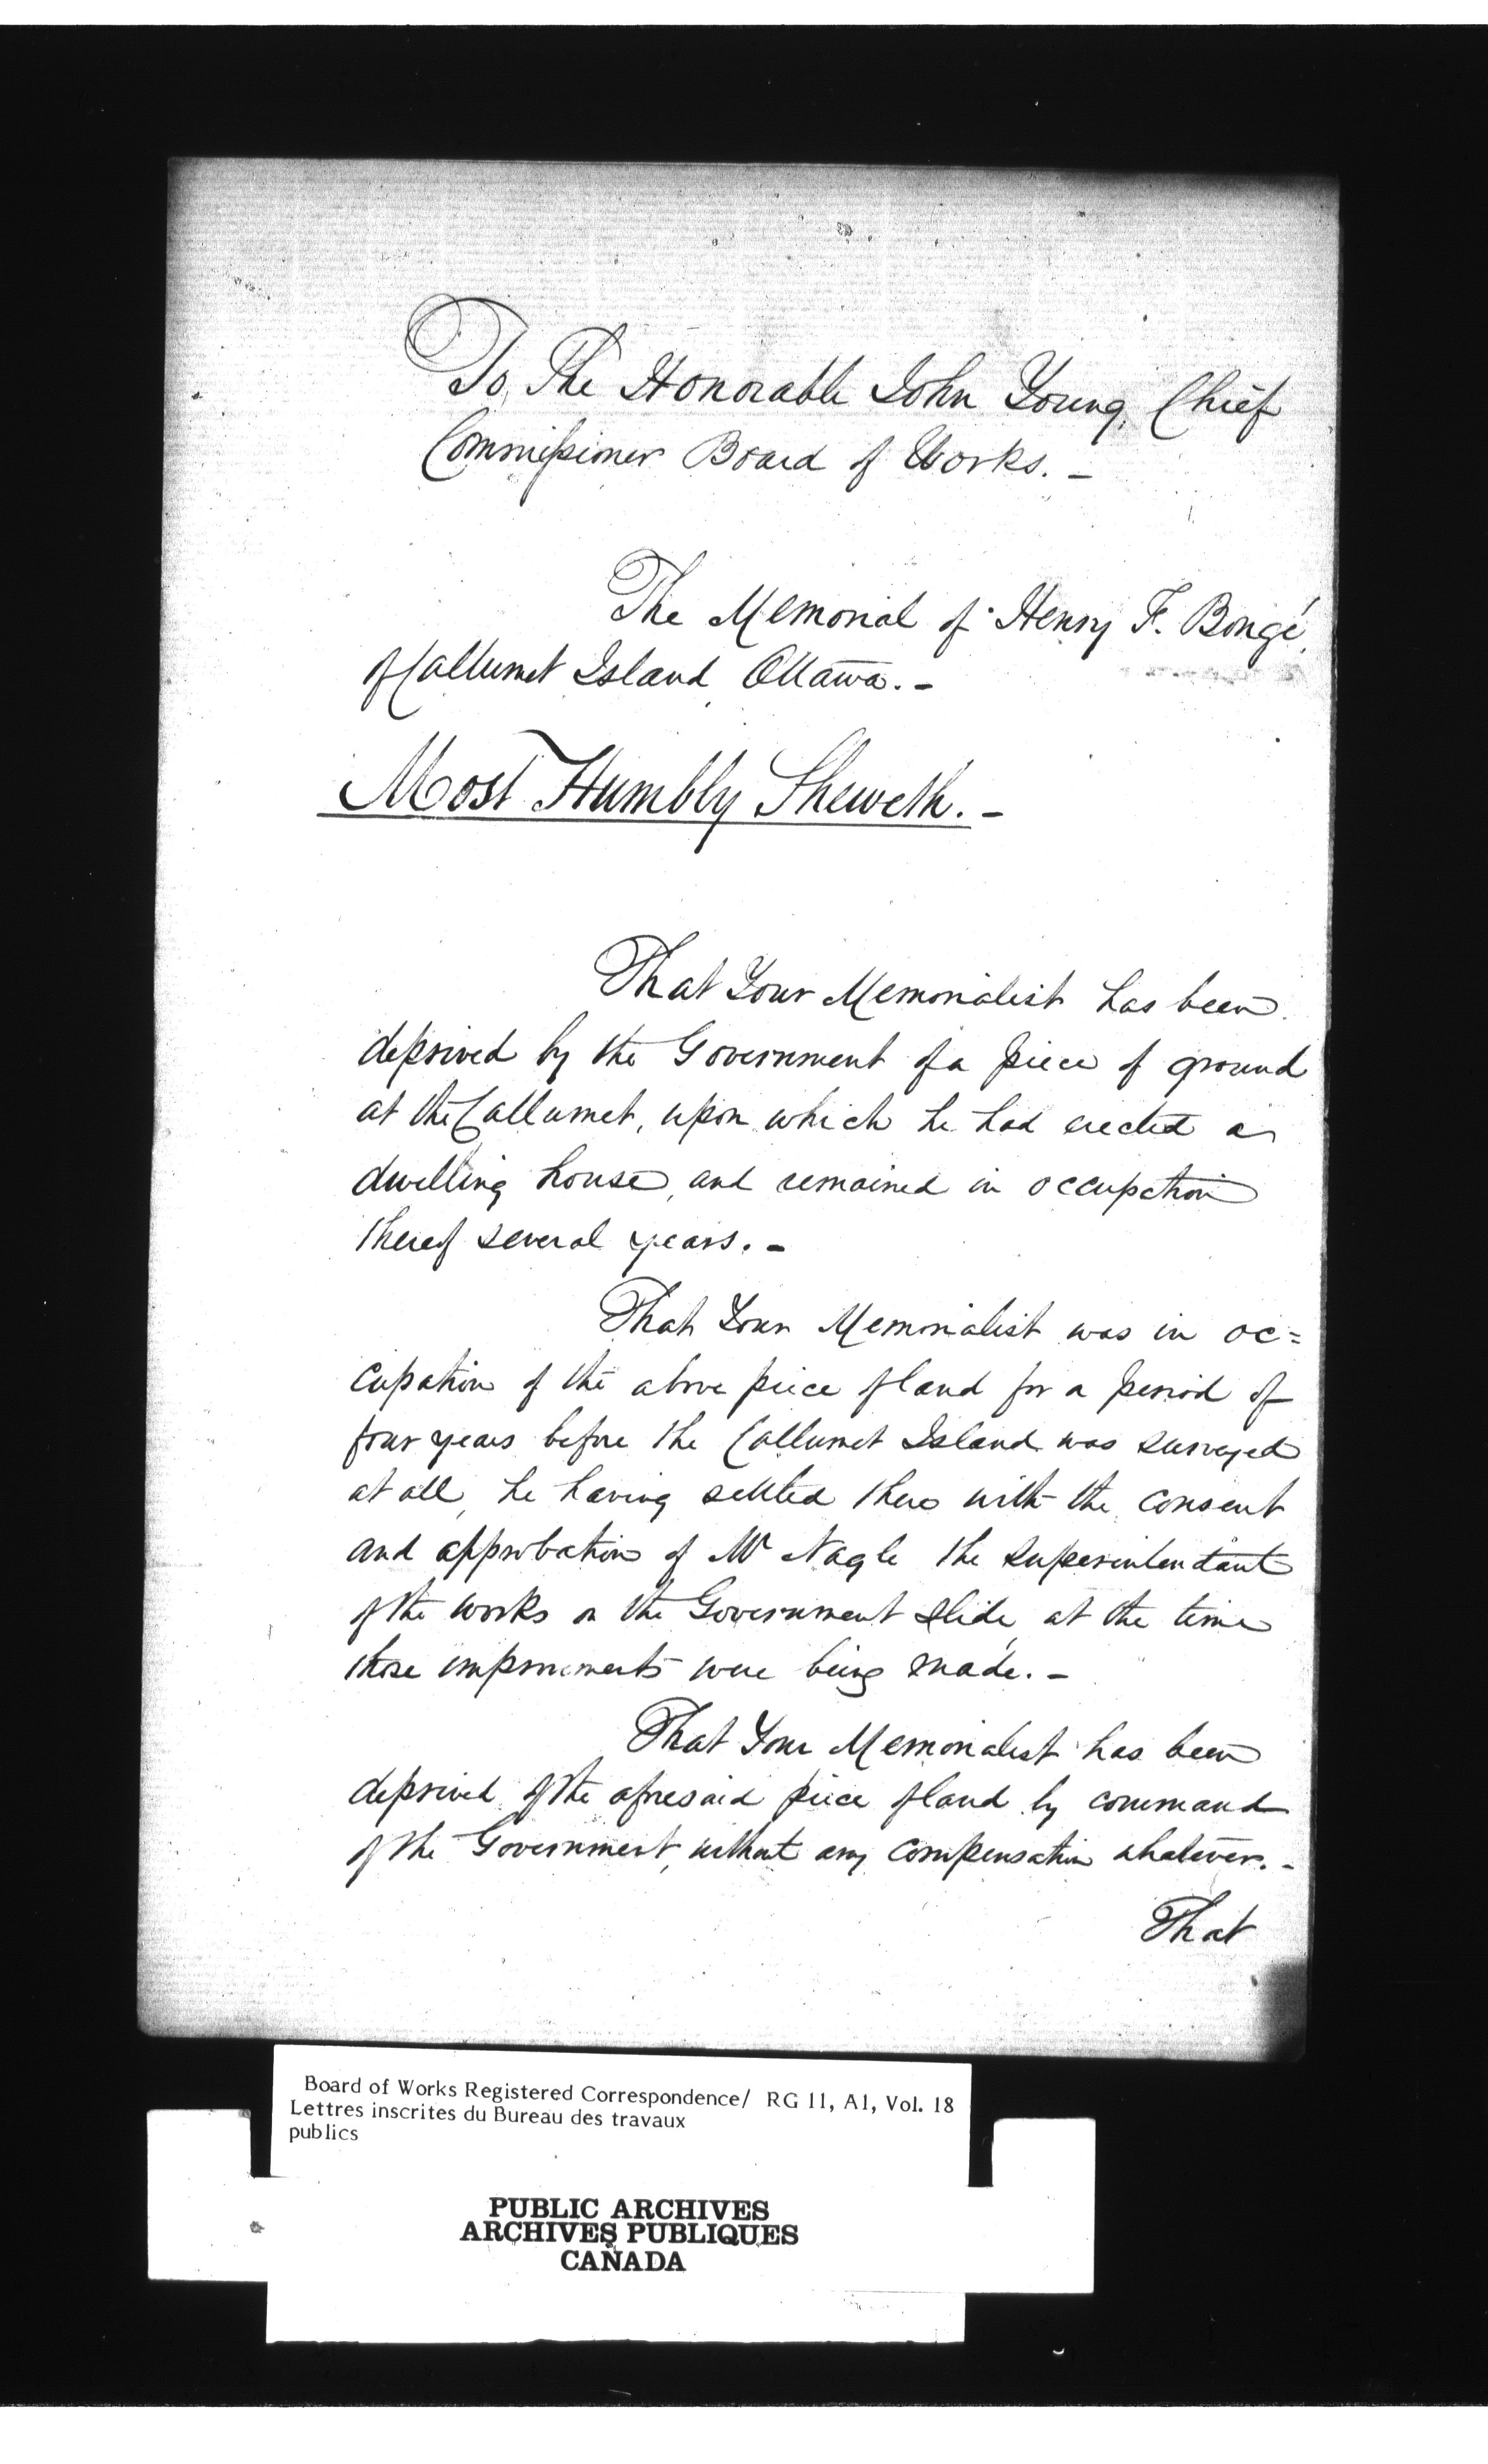 To The Honorable John Young, Chief
Commissioner Board of Works. -
The Memorial of Henry F. Bongé,
of Callumet Island Ottawa. -
Most Humbly Sheweth. -
That Your Memorialist has been
deprived by the Government of a piece of ground
at the Callumet, upon which he had erected a
dwelling house, and remained in occupation
thereof several years. -
That Your Memorialist was in oc=
cupation of the above piece of land for a period of
four years before the Callumet Island was surveyed
at all, he having settled there with the consent
and approbation of Mr Nagle the Superintendant
of the works on the Government Slide, at the time
those improvements were being made. -
That Your Memorialist has been
deprived of the aforesaid piece of land by command
of the Government, without any compensation whatever. -
That
Board of Works Registered Correspondence/ RG 11, A1, Vol. 18
Lettres inscrites du Bureau des travaux
publics
PUBLIC ARCHIVES
ARCHIVES PUBLIQUES
CANADA